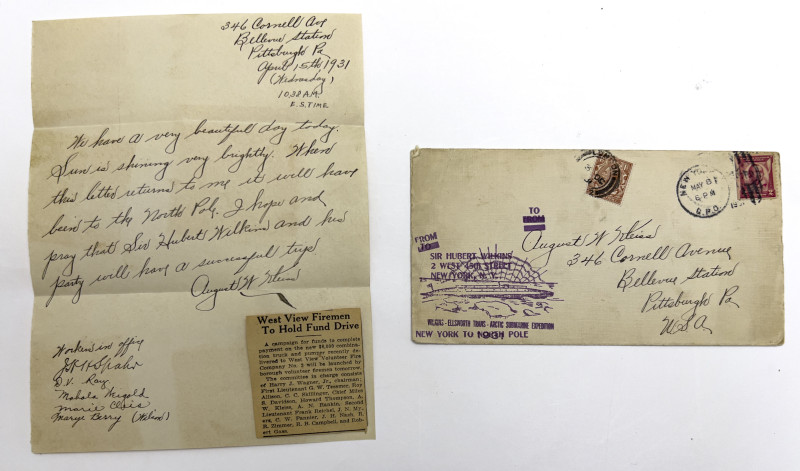 346 Cornell Ave
Bellevue Station
Pittsburgh Pa
April 15th 1931
(Wednesday)
10:38 A.M.
E.S. TIME
We have a very beautiful day today.
Sun is shining very brightly. When
this letter returns to me it will have
been to the North Pole. I hope and
pray that Sir Hubert Wilkins and his
party will have a successful trip
August W Kleiss
Workers in office
D.V. Ray
Mahala
Marie
Marye Berry
West View Firemen
To Hold Fund Drive
A campaign for funds to complete
payment on the new $8,500 combina-
tion truck and pumper recently de-
livered to West View Volunteer Fire
Company No. 2 will be launched by
borough volunteer firemen tomorrow.
The committee in charge consists
of Harry J. Wagner, Jr., chairman;
First Lieutenant G. W. Tessmer, Ray
Allison, C. C. Skillinger, Chief Miles
S. Davidson, Howard Thompson, A.
W. Kleiss, A. N. Rankin, Second
Lieutenant Frank Reichel, J. N. My-
ers, C. W. Pannier, J. H. Nash, R.
R. Zimmer, H. H. Campbell, and Rob-
ert Goss.
NEW
MAY 8
6 PM
G.P.O.
TO
FROM
FROM
TO
SIR HUBERT WILKINS
2 WEST 45th STREET
NEW YORK, N. Y.
WILKINS - ELLSWORTH TRANS - ARCTIC SUBMARINE EXPEDITION
NEW YORK TO NORTH POLE
1931
August W Kleiss
346 Cornell Avenue
Bellevue Station
Pittsburgh Pa
USA